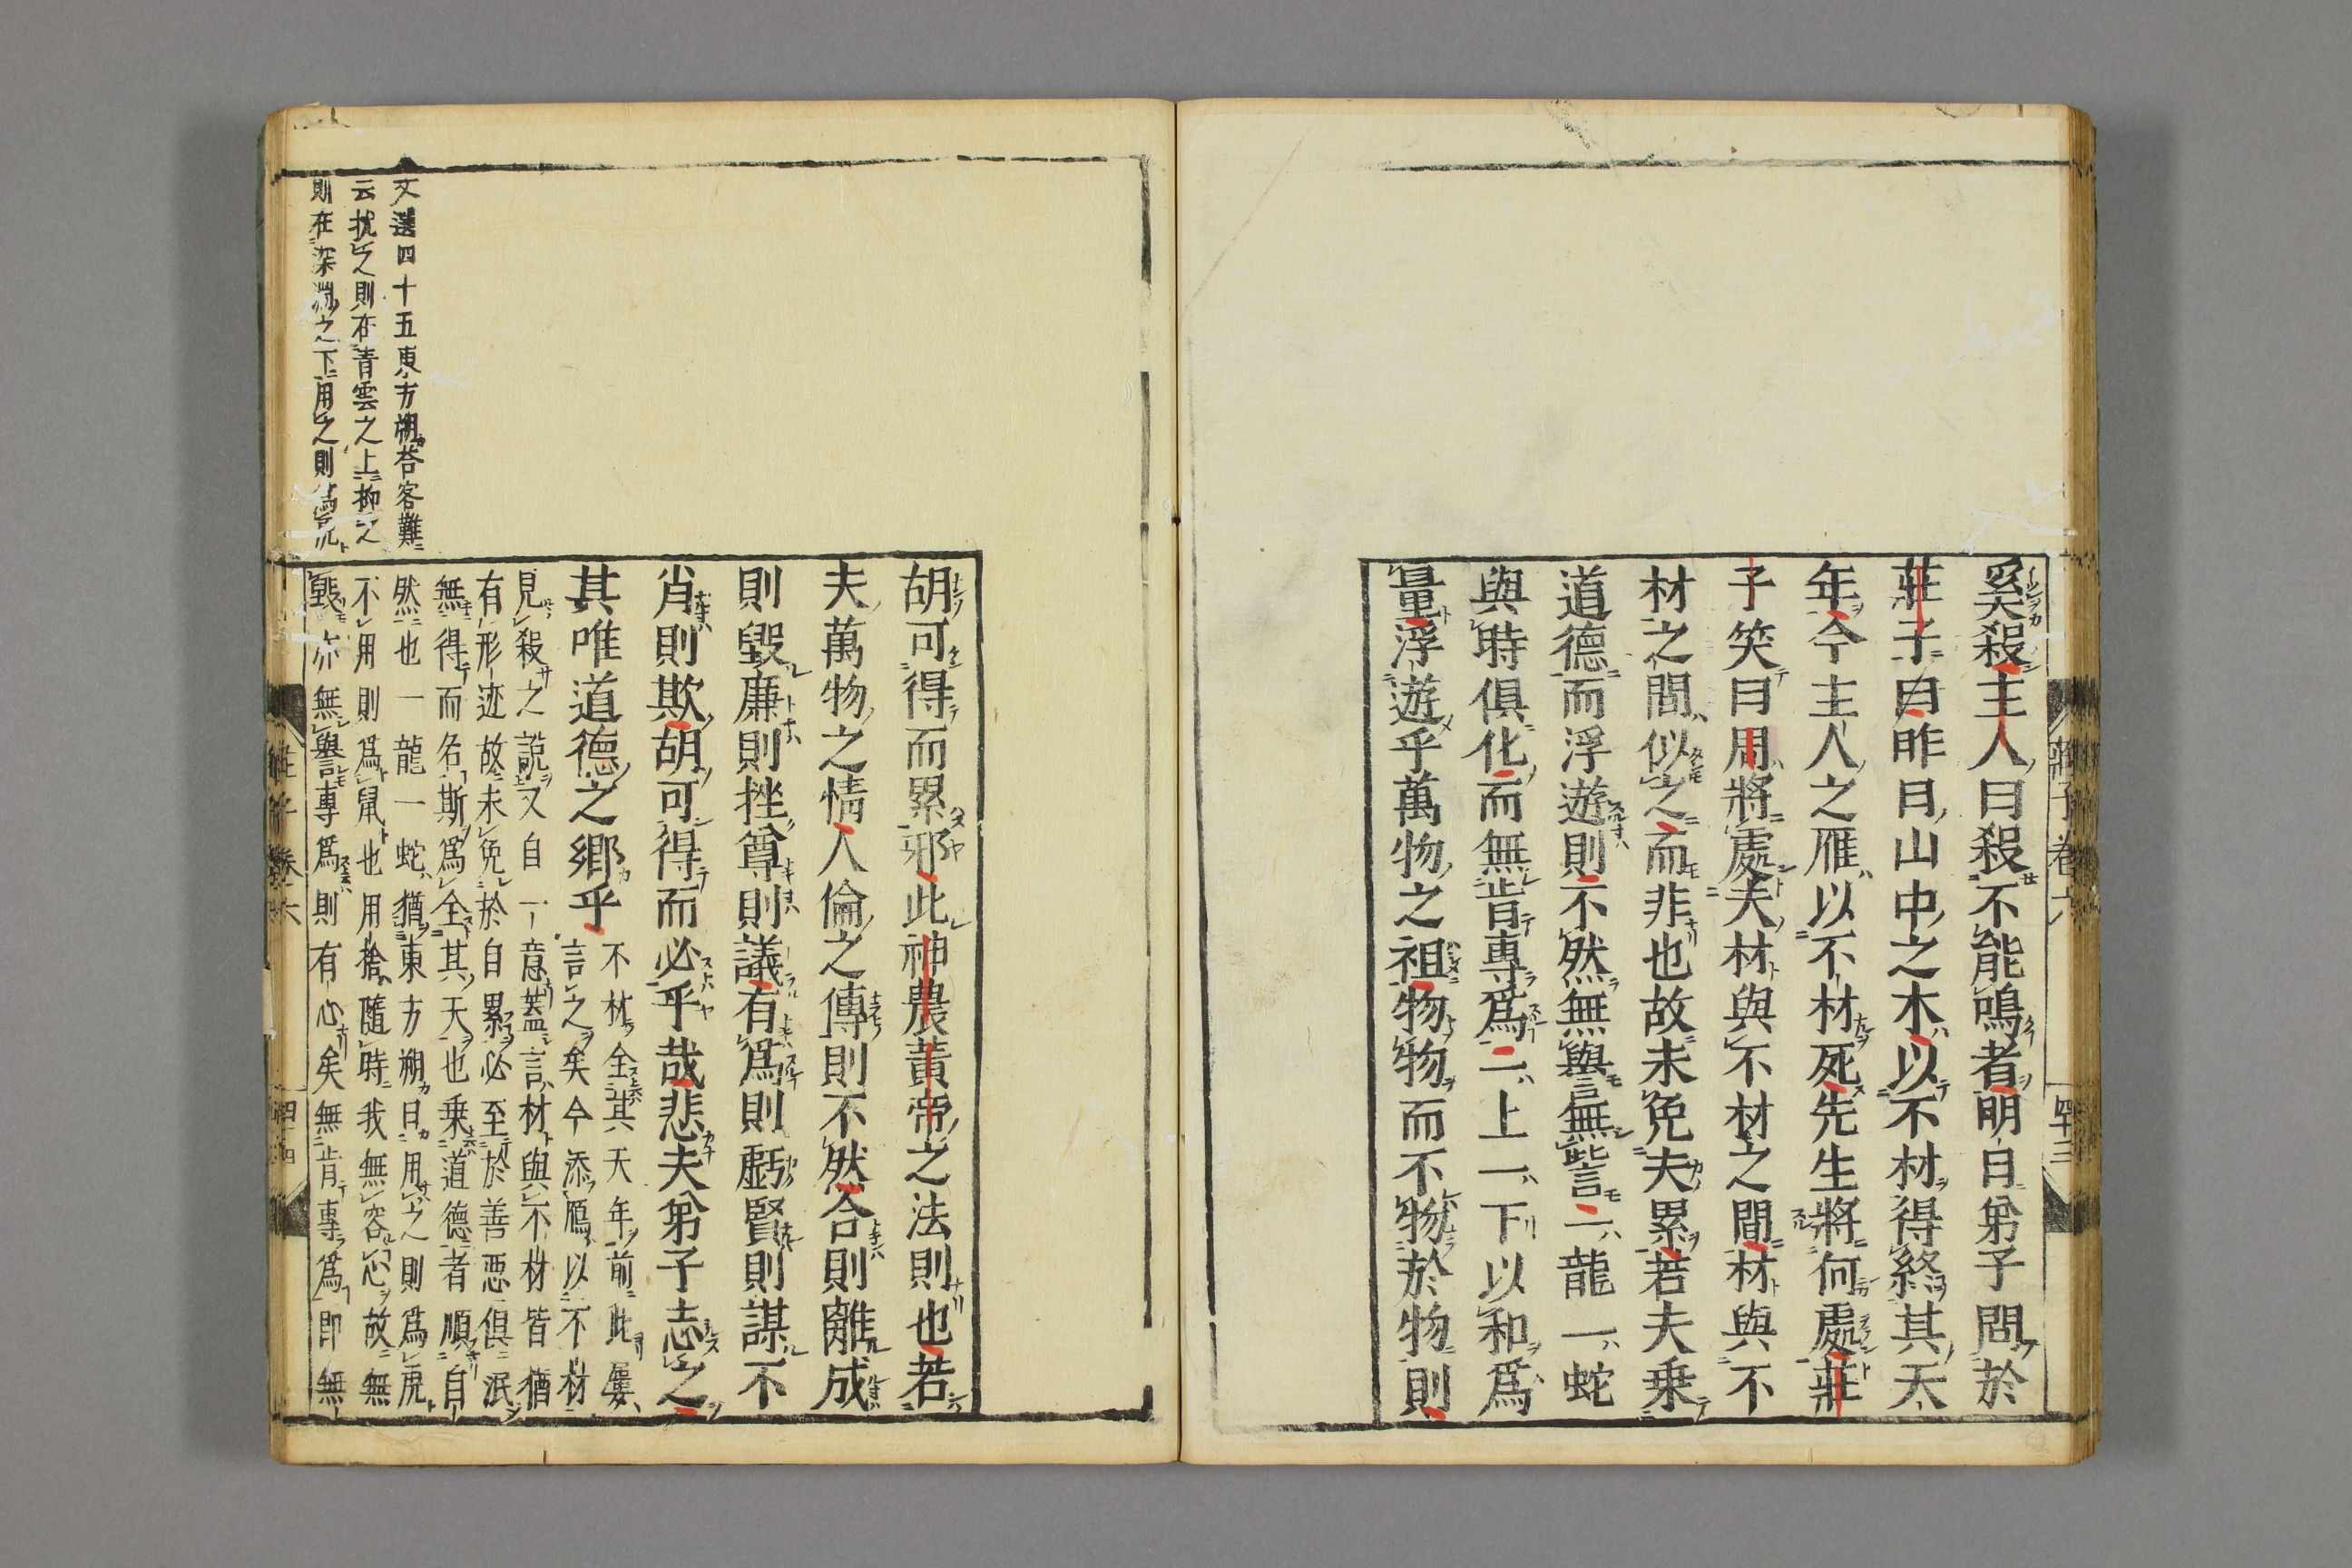 奚殺主人曰殺不能鳴者明日弟子問於
莊子曰昨日山中之木以不材得終其天
年今主人之雁以不材死先生將何處莊
子笑曰周將處夫材與不材之間材與不
材之間似之而非也故未免夫累若夫乗
道德而浮遊則不然無譽無訾一龍一蛇
與時俱化而無肯專爲一上一下以和爲
量浮遊乎萬物之祖物物而不物於物則
莊子卷六
四十三
胡可得而累邪此神農黃帝之法則也若
夫萬物之情人倫之傳則不然合則離成
則毀廉則挫尊則議有爲則虧賢則謀不
肖則欺胡可得而必乎哉悲夫弟子志之
其唯道德之鄉乎
不材全其天年前此屢
言之矣今添鴈以不材
見殺之說又自一意蓋言材與不材皆猶
有形迹故未免於自累必至於善惡俱泯
無得而名斯爲全其天也乗道德者順自
然也一龍一蛇猶東方朔曰用之則爲虎
不用則爲鼠也用捨隨時我無容心故無
毀亦無譽專爲則有心矣無肯專爲即無
文選四十五東方朔荅客難
云抗之則在青雲之上抑之
則在深淵之下用之則爲虎
莊子卷六
四十四